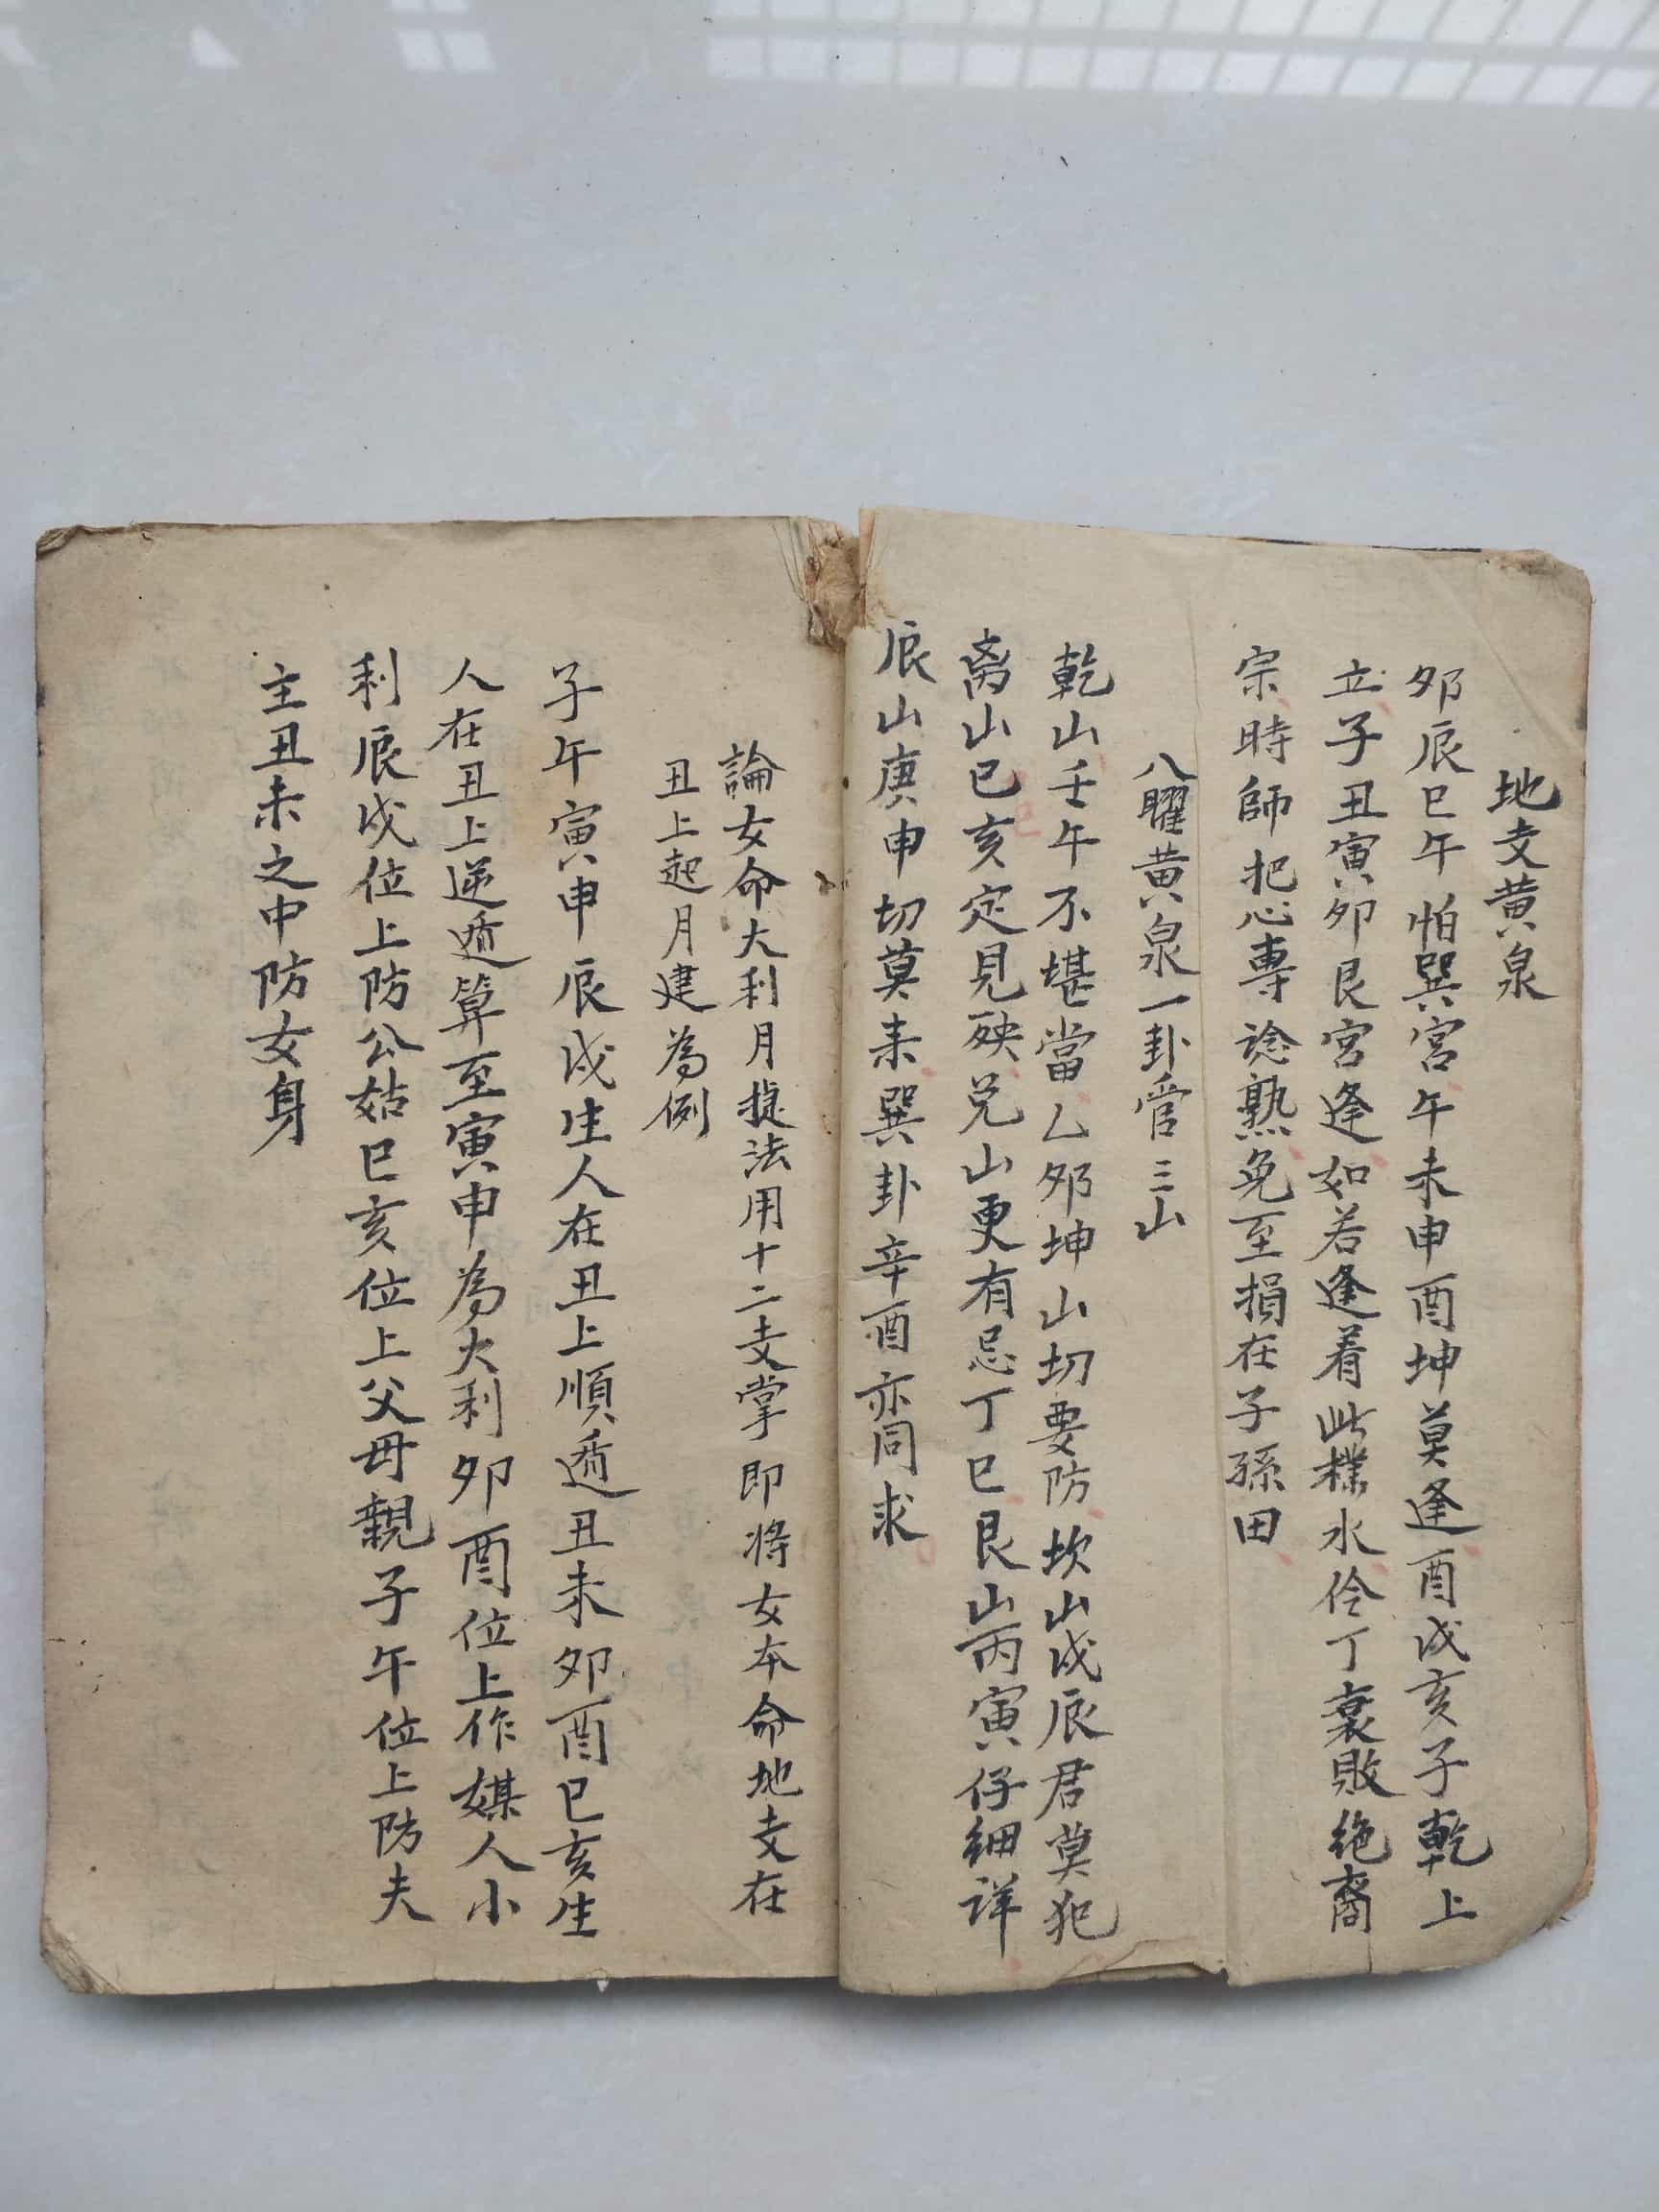 地支黄泉
夘辰巳午怕巽宮午未申酉坤莫逢酉戌亥子乾上
立子丑寅夘艮宮逢如若逢着此樣水伶丁衰敗絶裔
宗時師把心專諗熟免至損在子孫田
八曜黄泉一卦管三山
乾山壬午不堪當乙夘坤山切要防坎山戌辰君莫犯
离山巳亥定見殃兑山更有忌丁巳艮山丙寅仔細詳
辰山庚申切莫来巽卦辛酉亦同求
論女命大利月捷法用十二支掌即将女本命地支在
丑上起月建為例
子午寅申辰戌生人在丑上順遁丑未夘酉巳亥生
人在丑上逆遁算至寅申為大利夘酉位上作媒人小
利辰戌位上防公姑巳亥位上父母親子午位上防夫
主丑未之中防女身